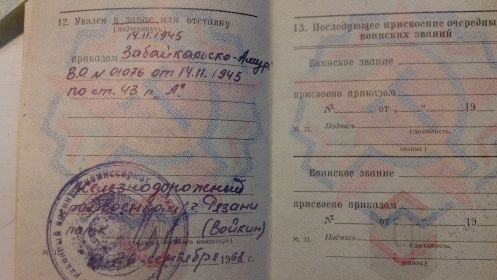 12. Уволен в запас или отставку
(подчеркнуть)
14.11.1945
приказом Забайкальско-Амур.
В.О. № 01076 от 14.11.1945
по ст. 43 п. "А"
Железнодорожный
райвоенком г. Рязани
(Войкин)
6 сентября 1968 г.
13. Последующее присвоение очередных
воинских званий
Воинское звание
присвоено приказом
№ от „ “ 19
м. п. Подпись
(должность,
звание)
Воинское звание
присвоено приказом
№ от „ “ 19
м. п. Подпись
(должность,
звание)